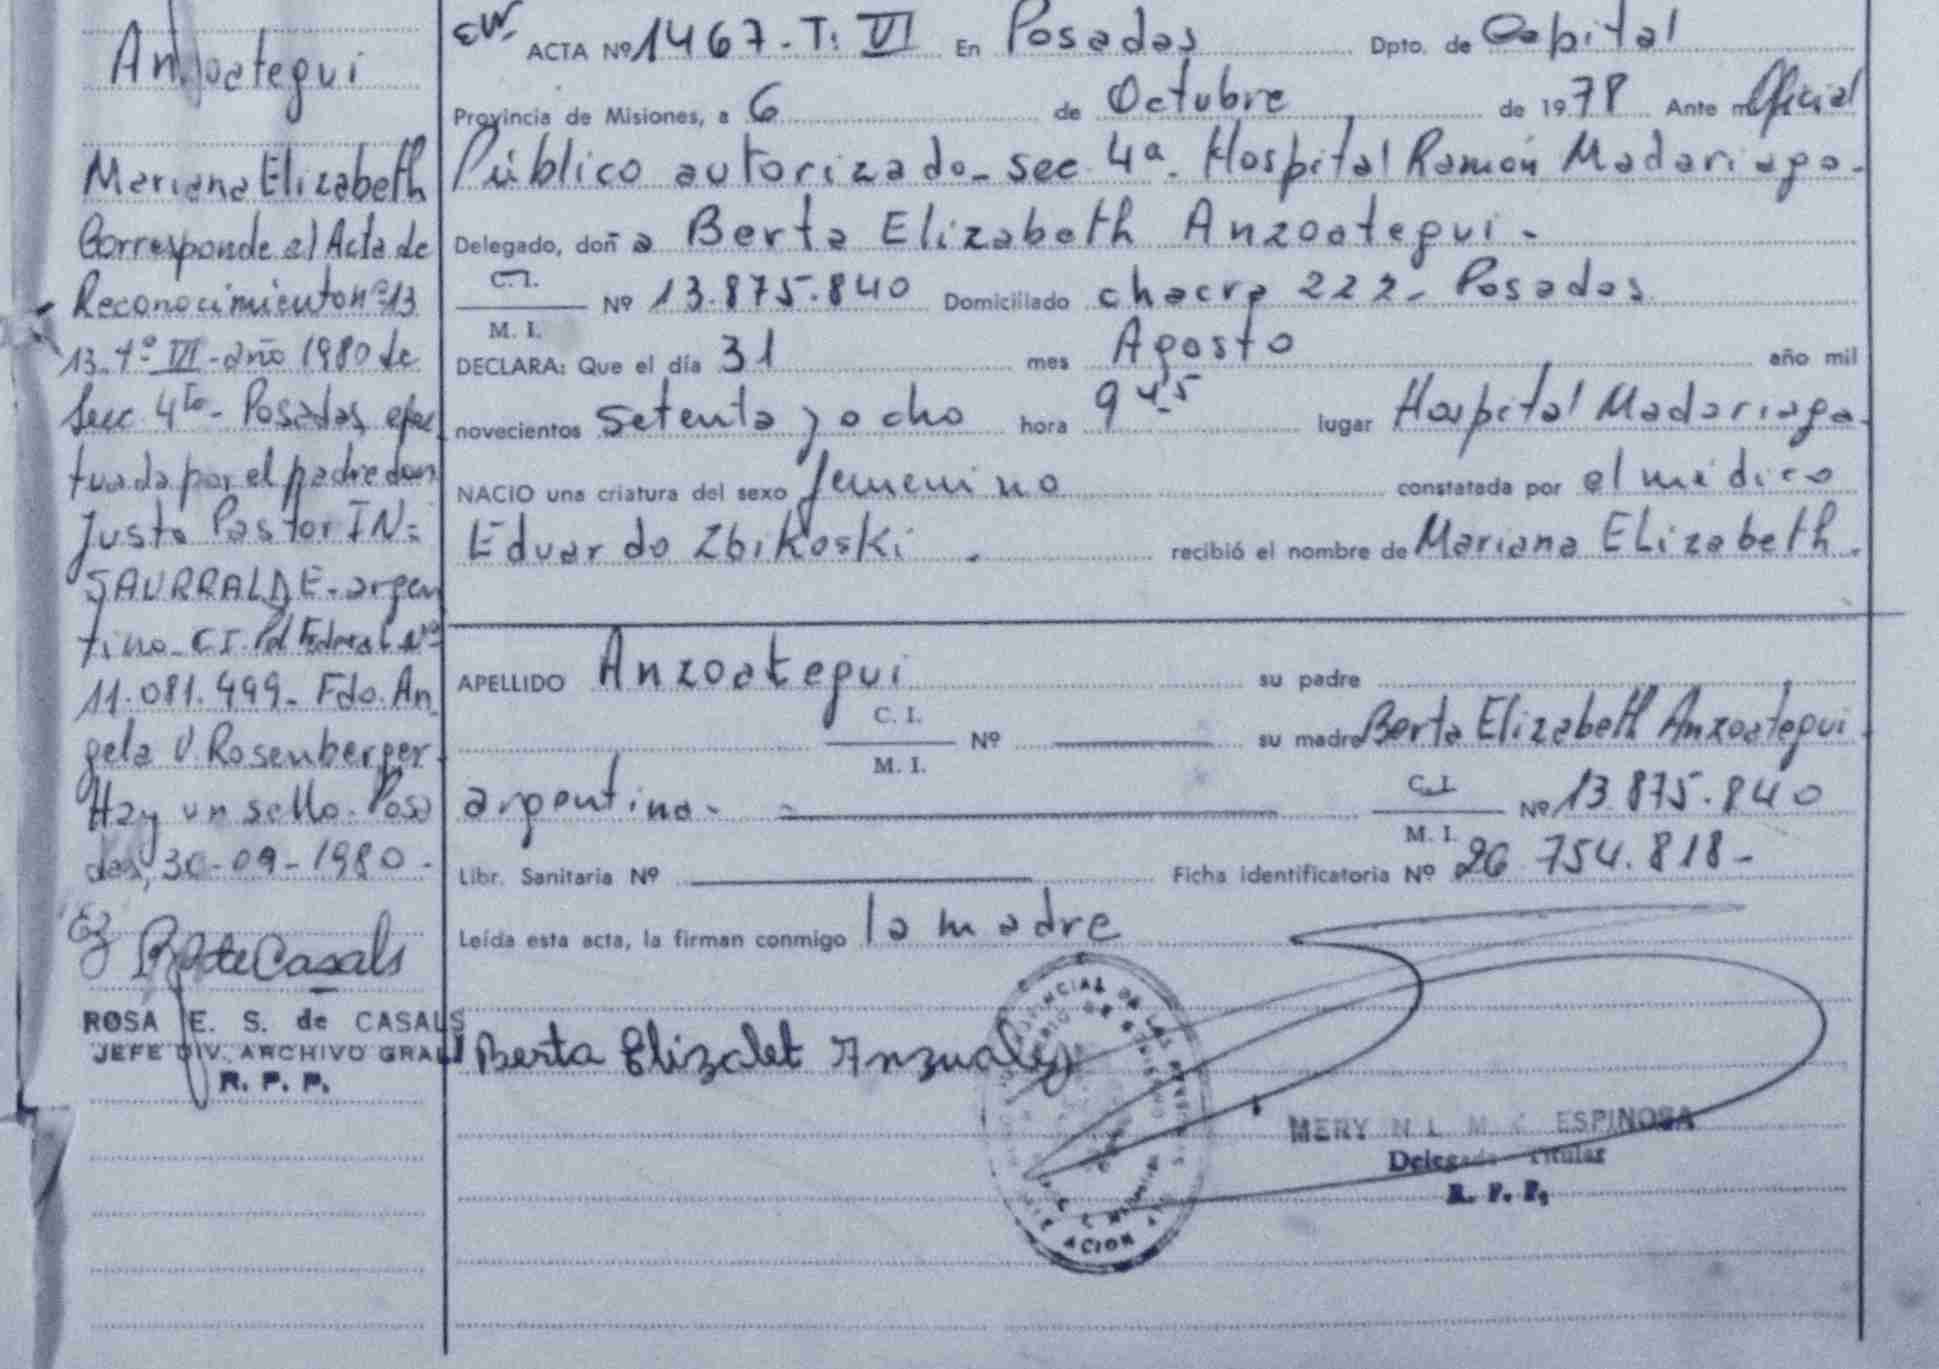 Anzoategui
Mariana Elizabeth
Corresponde al Acta de
Reconocimiento nº 13
13. tº VI - año 1980 de
Secc 4ta - Posadas, efec
tuada por el padre don
Justo Pastor IN=
SAURRALDE - argen
tino - C.I. Pol Federal Nº
11.081.499 - Fdo. An
gela V. Rosenberger
Hay un sello. Posa
das, 30-09-1980 -
ROSA E. S. de CASALS
JEFE DIV. ARCHIVO GRAL
R. P. P.
ACTA Nº 1467 - T: VI En Posadas Dpto. de Capital
Provincia de Misiones, a 6 de Octubre de 1978 Ante m Oficial
Público autorizado - sec 4ª. Hospital Ramón Madariaga -
Delegado, doña Berta Elizabeth Anzoategui -
C.I.
M. I. Nº 13.875.840 Domiciliado chacra 222 - Posadas
DECLARA: Que el día 31 mes Agosto año mil
novecientos setenta y ocho hora 9 45 lugar Hospital Madariaga -
NACIO una criatura del sexo femenino constatada por el médico
Eduardo Zbikoski . recibió el nombre de Mariana Elizabeth .
APELLIDO Anzoategui su padre
C. I.
M. I. Nº su madre Berta Elizabeth Anzoategui
argentina - C.I.
M. I. Nº 13.875.840
Libr. Sanitaria Nº Ficha identificatoria Nº 26 754.818 -
Leída esta acta, la firman conmigo la madre
Berta Elizabet
MERY N L M ESPINOSA
Delegada Titular
R. P. P.